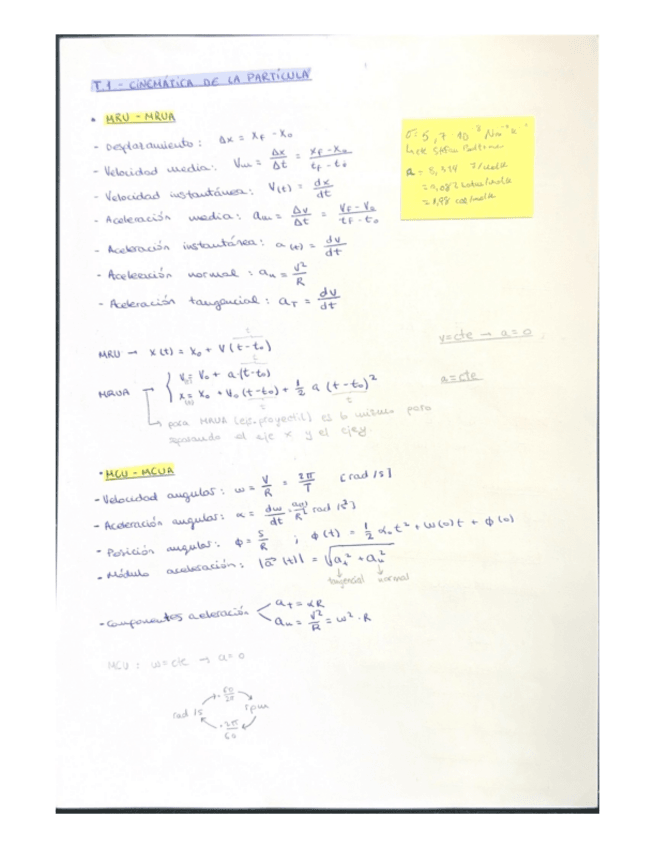 T.1 - CINEMÁTICA DE LA PARTÍCULA
• MRU - MRUA
- Desplazamiento: Δx = x_F - x_0
- Velocidad media: V_m = Δx/Δt = (x_F - x_0)/(t_F - t_0)
- Velocidad instantánea: V(t) = dx/dt
- Aceleración media: a_m = Δv/Δt = (V_F - V_0)/(t_F - t_0)
- Aceleración instantánea: a(t) = dv/dt
- Aceleración normal: a_n = v²/R
- Aceleración tangencial: a_T = dv/dt
σ: 5,7 10
R = 8,314 J/molK
= 0,082
= 1,98 cal/molK
MRU → x(t) = x_0 + V(t-t_0)
v=cte → a=0
MRUA → { V = V_0 + a·(t-t_0)
x = x_0 + V_0(t-t_0) + 1/2 a (t-t_0)²
a=cte
↳ para MRUA (ej: proyectil) es lo mismo pero
separando el eje x y el eje y.
• MCU - MCUA
- Velocidad angular: ω = V/R = 2π/T [rad/s]
- Aceleración angular: α = dω/dt = a(t)/R [rad/s²]
- Posición angular: φ = S/R ; φ(t) = 1/2 α·t² + ω(0)t + φ(0)
- Módulo aceleración: |a⃗(t)| = √(a_t² + a_n²)
tangencial normal
- Componentes aceleración < a_T = αR
a_n = v²/R = ω²·R
MCU: ω=cte → a=0
· 60/2π
rad/s rpm
· 2π/60